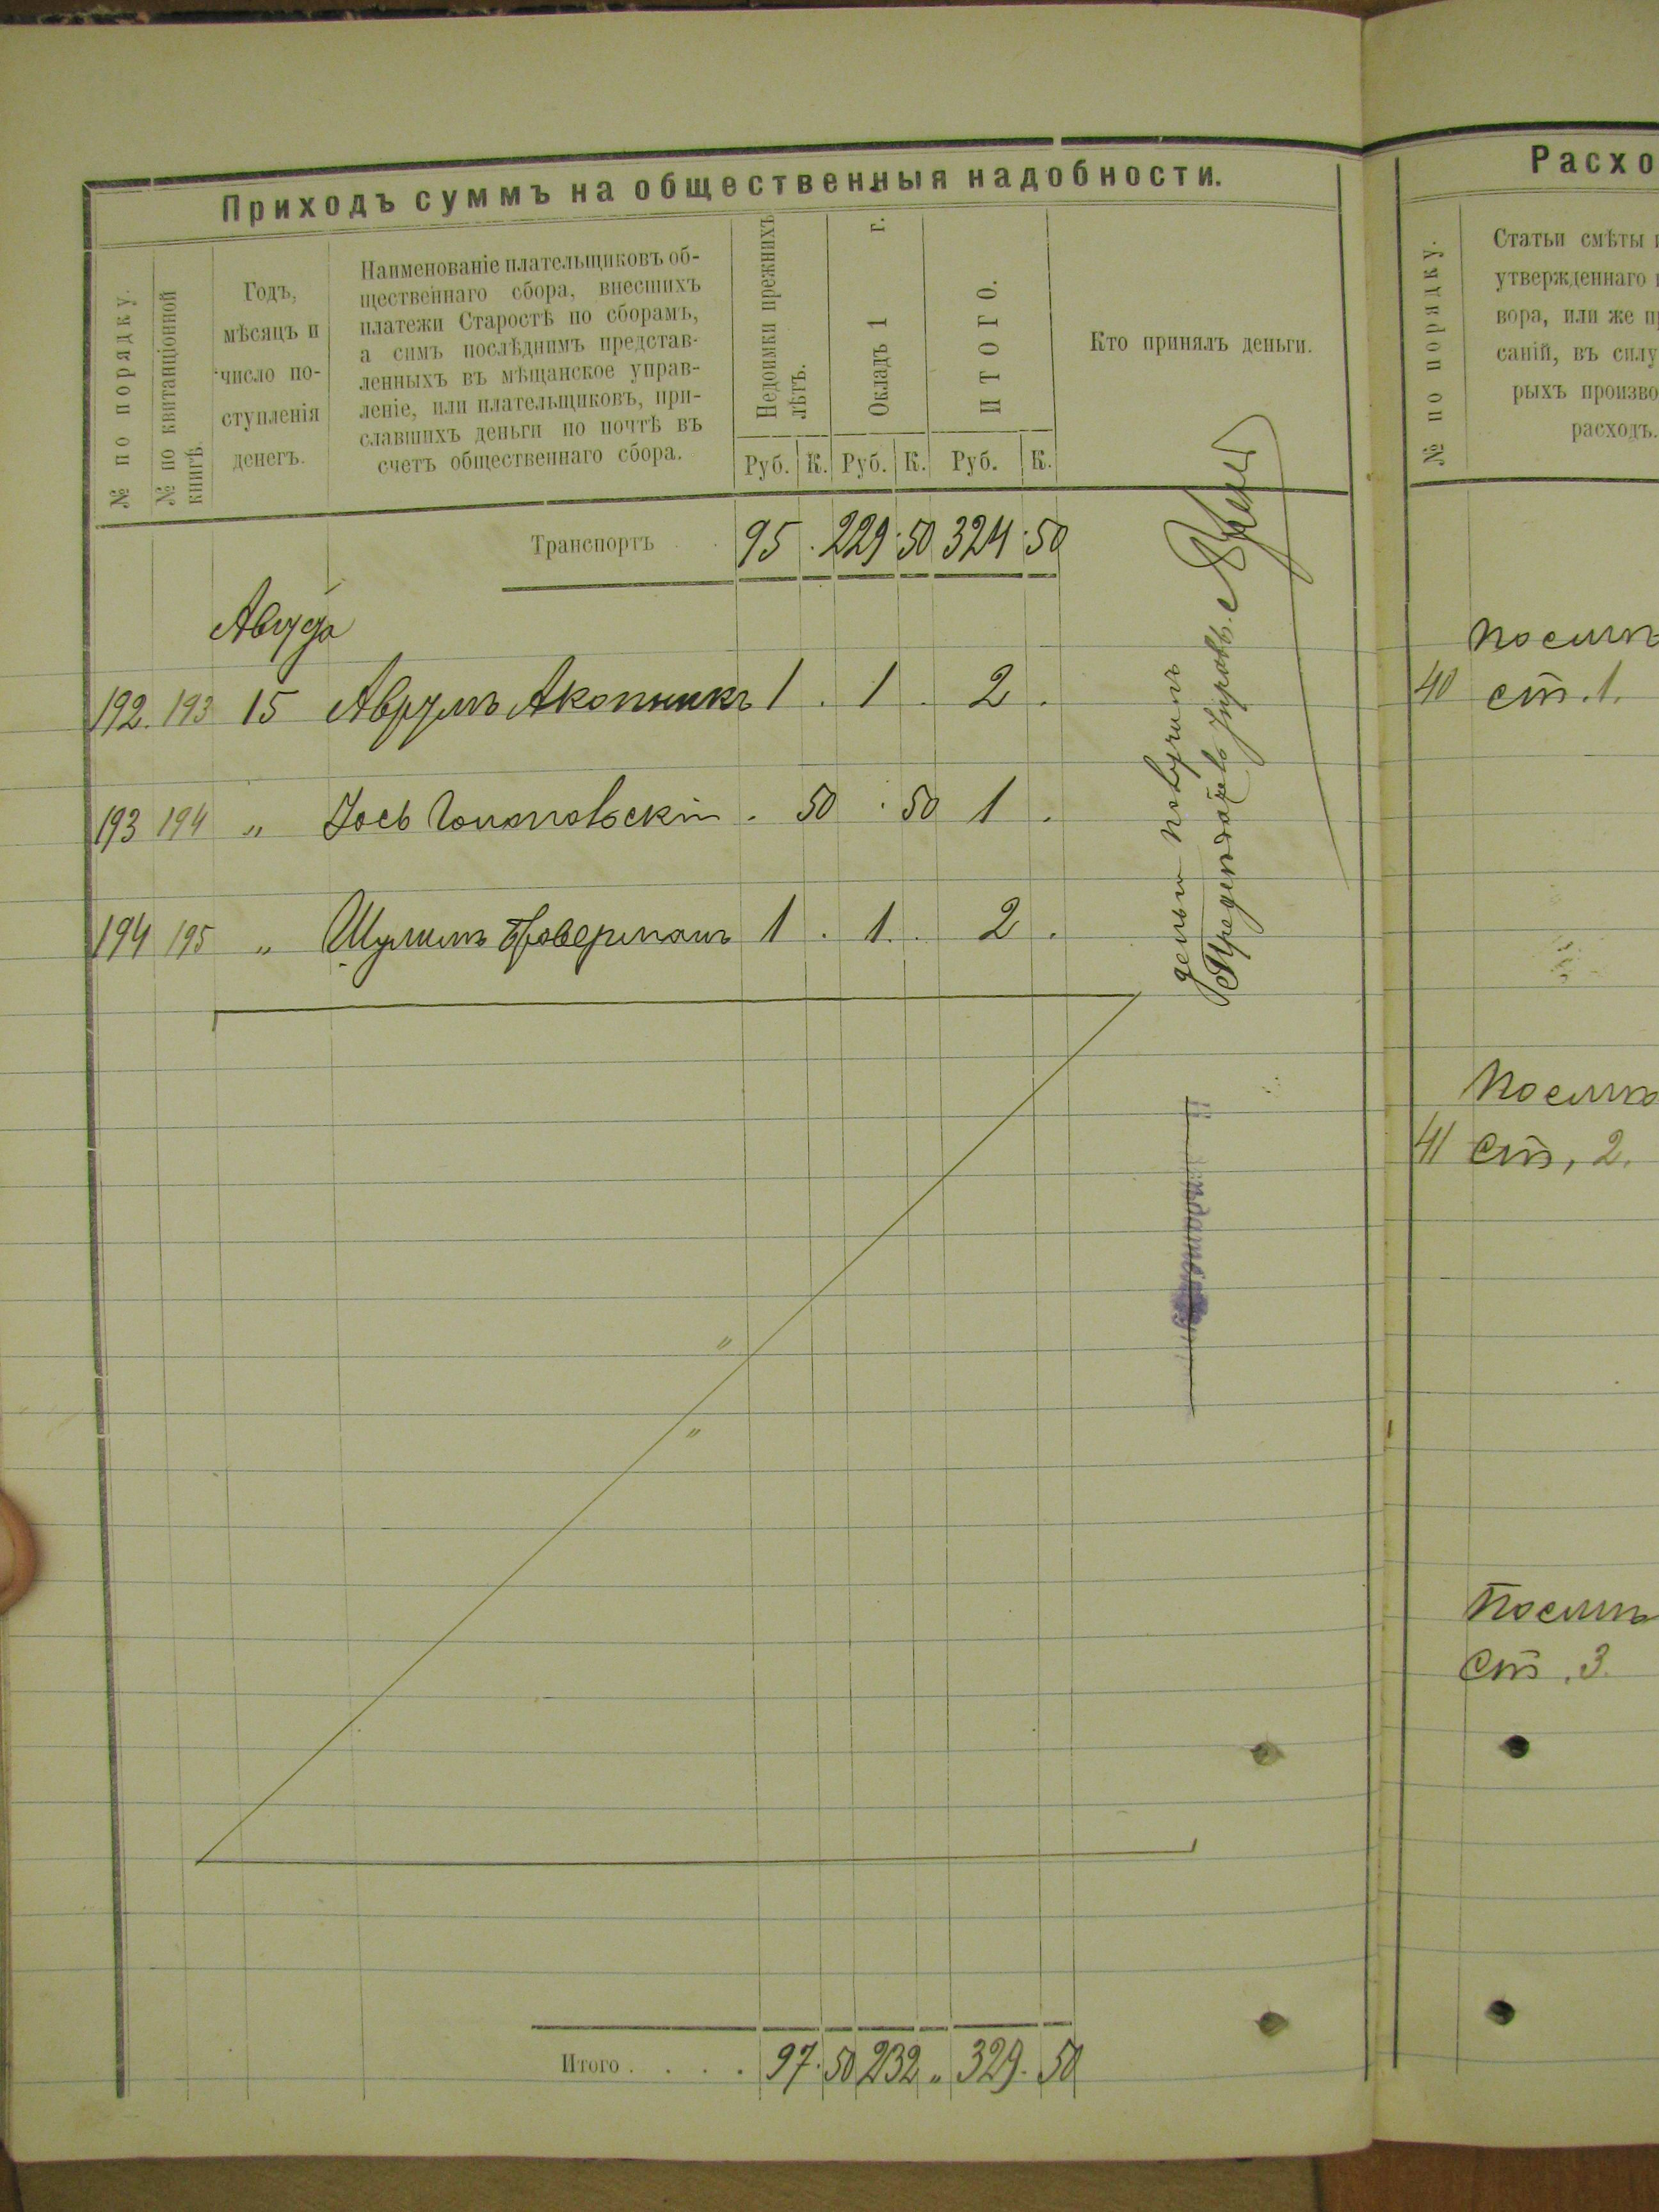 Приходъ суммъ на общественныя надобности.
№ по порядку.
№ по квитанціонной
книгѣ.
Годъ,
мѣсяцъ и
число по-
ступленія
денегъ.
Наименованіе плательщиковъ об-
щественнаго сбора, внесшихъ
платежи Старостѣ по сборамъ,
а симъ послѣднимъ представ-
ленныхъ въ мѣщанское управ-
леніе, или плательщиковъ, при-
славшихъ деньги по почтѣ въ
счетъ общественнаго сбора.
Недоимки прежнихъ
лѣтъ.
Окладъ 1 г.
ИТОГО.
Руб. К. Руб. К. Руб. К.
Кто принялъ деньги.
Транспортъ . . 95 . 229 . 50 324 . 50
Августа
192. 193 15 Аврумъ 1 . 1 . 2 .
193 194 " Іось . 50 . 50 1 .
194 195 " Шулимъ Браверманъ 1 . 1 . 2 .
деньги получилъ
"
"
Итого . . . . 97 . 50 232 " 329 . 50
Расхо
№ по порядку.
Статьи смѣты
утвержденнаго
вора, или же пр
саній, въ силу
рыхъ произво
расходъ.
По смѣт
40 ст. 1.
По смѣт
41 ст. 2.
По смѣт
ст. 3.